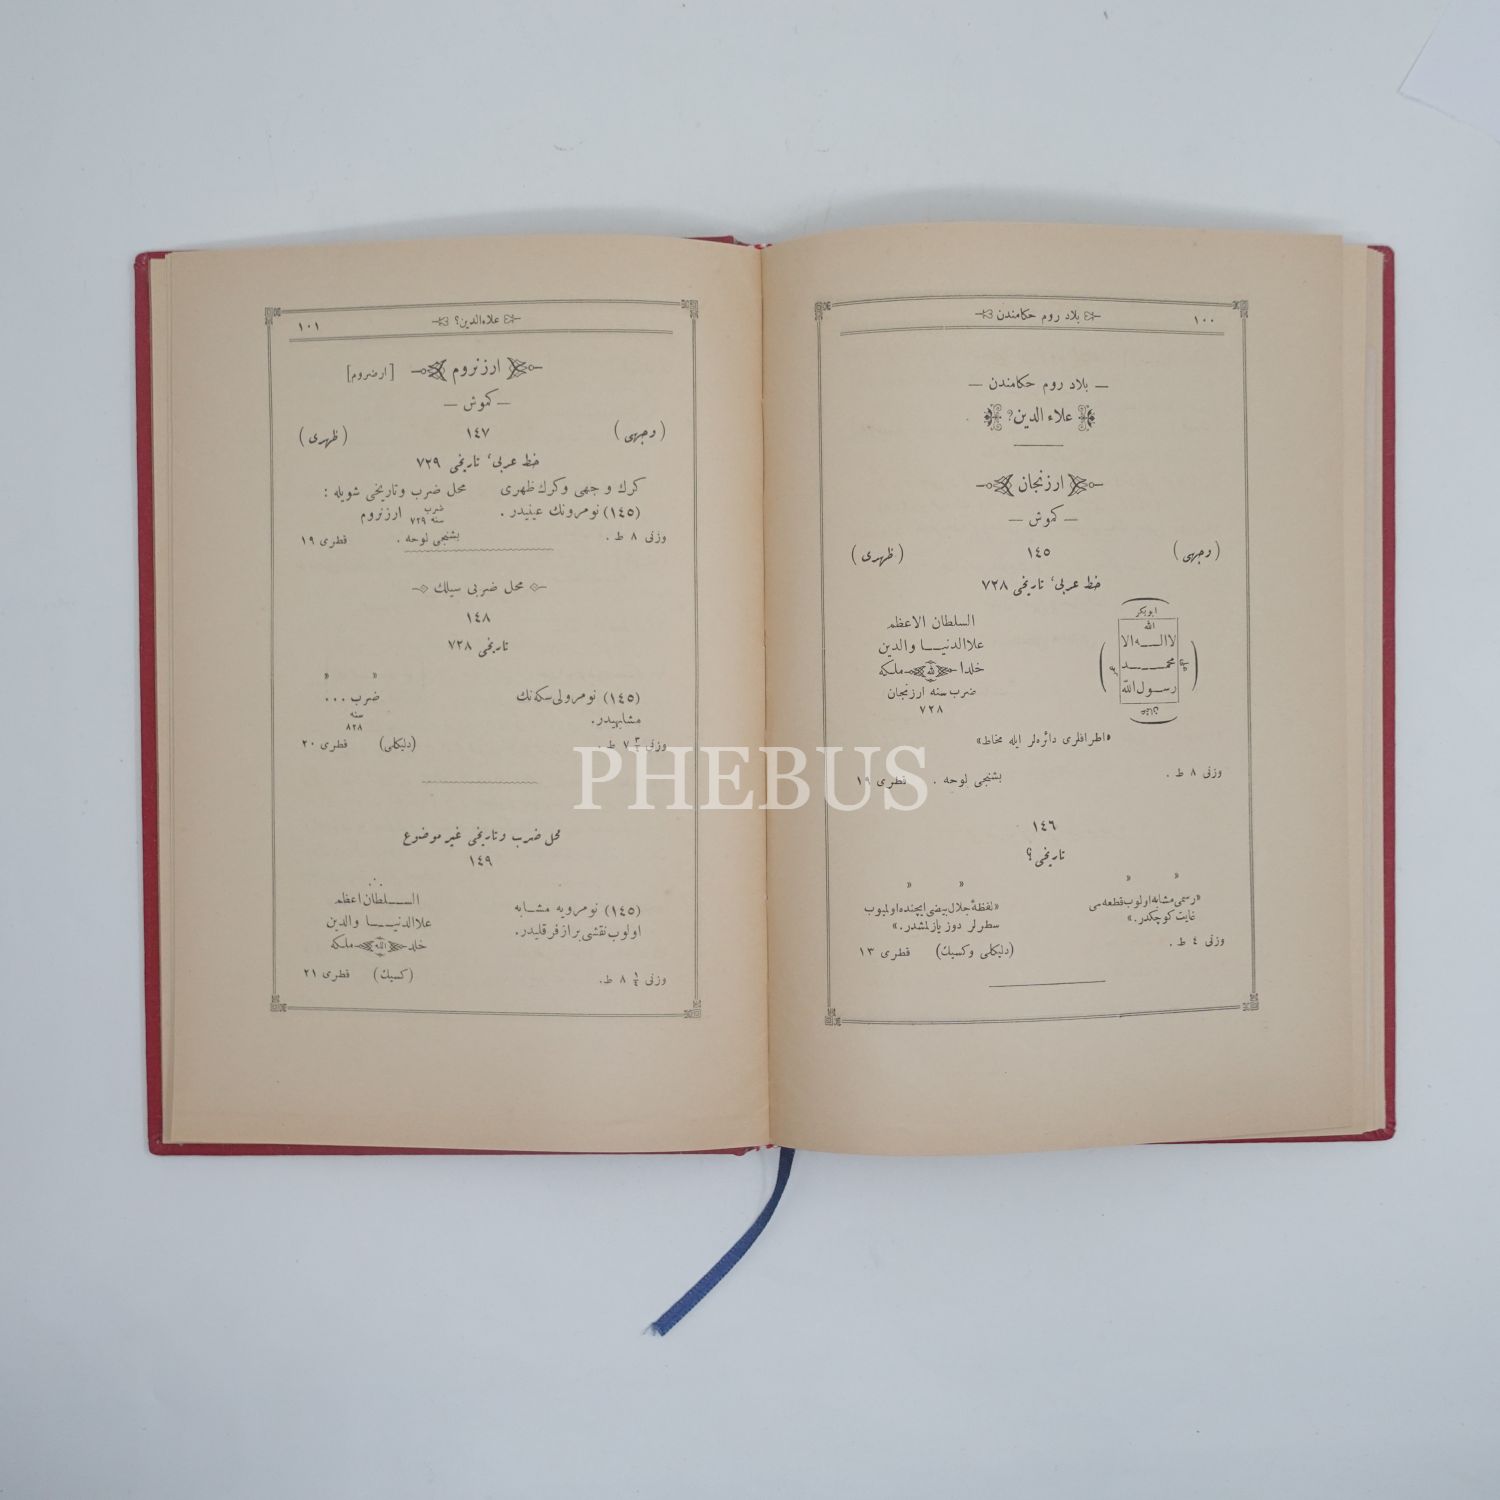 ١٠٠
بلاد روم حكامندن
— بلاد روم حكامندن —
علاء الدين؟
ارزنجان
— كموش —
(وجهى) ١٤٥ (ظهرى)
خط عربى، تاريخى ٧٢٨
ابوبكر
الله
لا اله الا
محمد
رسول الله
عمر
على
عثمان
السلطان الاعظم
علا الدنيا والدين
خلدا لله ملكه
ضرب سنه ارزنجان
٧٢٨
«اطرافلرى دائره‌لر ايله محاط»
وزنى ٨ ط . بشنجى لوحه . قطرى ١٩
١٤٦
تاريخى؟
» » » »
«رسمى مشابه اولوب قطعه‌سى
غايت كوچكدر.»
«لفظهٔ جلال بيضى ايچنده اولميوب
سطرلر دوز يازلمشدر.»
وزنى ٤ ط . (دليكلى وكسيك) قطرى ١٣
علاءالدين؟ ١٠١
ارزنروم [ارضروم]
— كموش —
(وجهى) ١٤٧ (ظهرى)
خط عربى، تاريخى ٧٢٩
كرك وجهى وكرك ظهرى
(١٤٥) نومرونك عينيدر .
محل ضرب وتاريخى شويله :
ضرب
سنه ٧٢٩ ارزنروم
وزنى ٨ ط . بشنجى لوحه . قطرى ١٩
محل ضربى سيلك
١٤٨
تاريخى ٧٢٨
» »
(١٤٥) نومرولى سكه‌نك
مشابهيدر.
ضرب ...
سنه
٨٢٨
وزنى ٧ ط . (دليكلى) قطرى ٢٠
محل ضرب وتاريخى غير موضوع
١٤٩
(١٤٥) نومرويه مشابه
اولوب نقشى براز فرقليدر.
السلطان اعظم
علا الدنيا والدين
خلد الله ملكه
وزنى ٨ ١/٤ ط. (كسيك) قطرى ٢١
PHEBUS